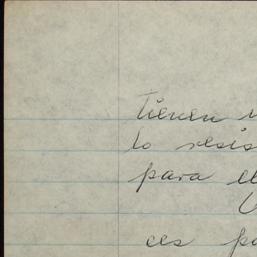 tienen
lo resis
para el
ces po